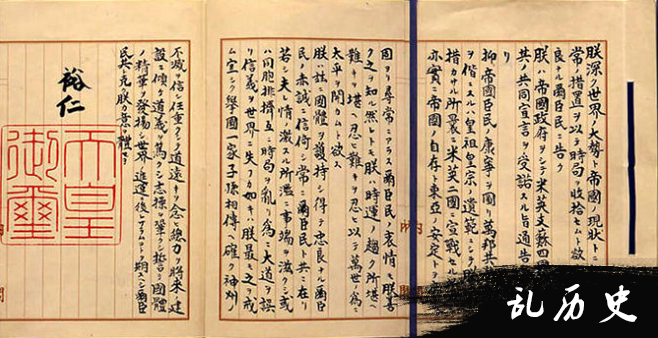 朕深ク世界ノ大勢ト帝國ノ現狀トニ
常ノ措置ヲ以テ時局ヲ收拾セムト欲
良ナル爾臣民ニ告ク
朕ハ帝國政府ヲシテ米英支蘇四
其ノ共同宣言ヲ受諾スル旨通告
リ
抑帝國臣民ノ康寧ヲ圖リ萬邦共
ヲ偕ニスルハ皇祖皇宗ノ遺範ニシテ
措カサル所曩ニ米英二國ニ宣戰セル
亦實ニ帝國ノ自存ト東亞ノ安定ト
固ヨリ尋常ニアラス爾臣民ノ衷情モ朕善
ク之ヲ知ル然レトモ朕ハ時運ノ趨ク所堪ヘ
難キヲ堪ヘ忍ヒ難キヲ忍ヒ以テ萬世ノ爲ニ
太平ヲ開カムト欲ス
朕ハ茲ニ國體ヲ護持シ得テ忠良ナル爾臣
民ノ赤誠ニ信倚シ常ニ爾臣民ト共ニ在リ
若シ夫レ情ノ激スル所濫ニ事端ヲ滋クシ或
ハ同胞排擠互ニ時局ヲ亂リ爲ニ大道ヲ誤
リ信義ヲ世界ニ失フカ如キハ朕最モ之ヲ戒
ム宜シク擧國一家子孫相傳ヘ確ク神州ノ
不滅ヲ信シ任重クシテ道遠キヲ念ヒ總力ヲ將來ノ建
設ニ傾ケ道義ヲ篤クシ志操ヲ鞏クシ誓テ國體
ノ精華ヲ發揚シ世界ノ進運ニ後レサラムコトヲ期スヘシ爾臣
民其レ克ク朕カ意ヲ體セヨ
裕仁
天皇
御璽
乱历史